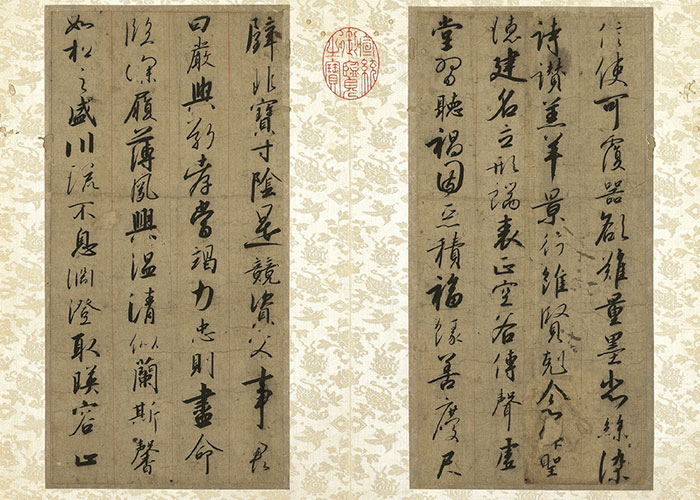 信使可覆器欲難量墨悲絲染
詩讚羔羊景行維賢剋念作聖
德建名立形端表正空谷傳聲虛
堂習聽禍因惡積福緣善慶尺
宣統
御覽
之寶
璧非寶寸陰是競資父事君
曰嚴與敬孝當竭力忠則盡命
臨深履薄夙興溫清似蘭斯馨
如松之盛川流不息淵澄取映容止